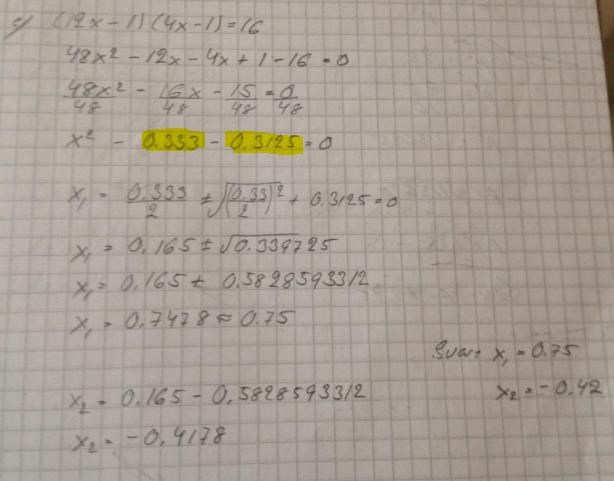 c) (12x-1)(4x-1)=16
48x² - 12x - 4x + 1 - 16 = 0
48x²/48 - 16x/48 - 15/48 = 0/48
x² - 0.333 - 0.3125 = 0
x₁ = 0.333/2 ± √(0.33/2)² + 0.3125 = 0
x₁ = 0.165 ± √0.339725
x₁ = 0.165 ± 0.5828593312
x₁ = 0.7478 ≈ 0.75
Svar: x₁ = 0.75
x₂ = -0.42
x₂ = 0.165 - 0.5828593312
x₂ = -0.4178